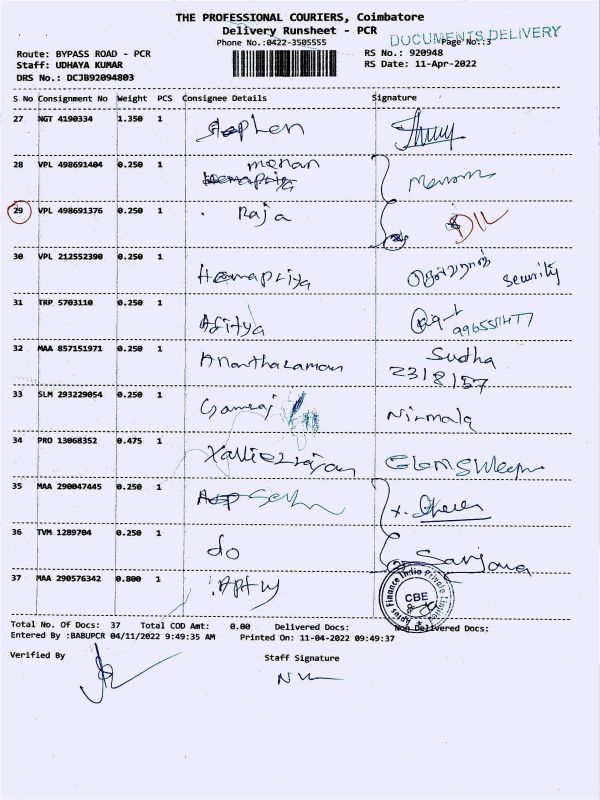 THE PROFESSIONAL COURIERS, Coimbatore
Delivery Runsheet - PCR
Phone No.:0422-3505555
DOCUMENTS DELIVERY
Page No.:3
Route: BYPASS ROAD - PCR
RS No.: 920948
Staff: UDHAYA KUMAR
RS Date: 11-Apr-2022
DRS No.: DCJB92094803
S No Consignment No Weight PCS Consignee Details Signature
27 NGT 4190334 1.350 1 Stephen
28 VPL 498691404 0.250 1 menan
29 VPL 498691376 0.250 1 Raja
30 VPL 212552390 0.250 1 Hemapriya security
31 TRP 5703110 0.250 1 Aditya
32 MAA 857151971 0.250 1 Anantharaman Sudha
2318157
33 SLM 293229054 0.250 1 Nirmala
34 PRO 13068352 0.475 1
35 MAA 290047445 0.250 1
36 TVM 1289704 0.250 1 do Sanjana
37 MAA 290576342 0.800 1
Aptus Finance India Private Limited
CBE
Total No. Of Docs: 37 Total COD Amt: 0.00 Delivered Docs: Non Delivered Docs:
Entered By :BABUPCR 04/11/2022 9:49:35 AM Printed On: 11-04-2022 09:49:37
Verified By Staff Signature